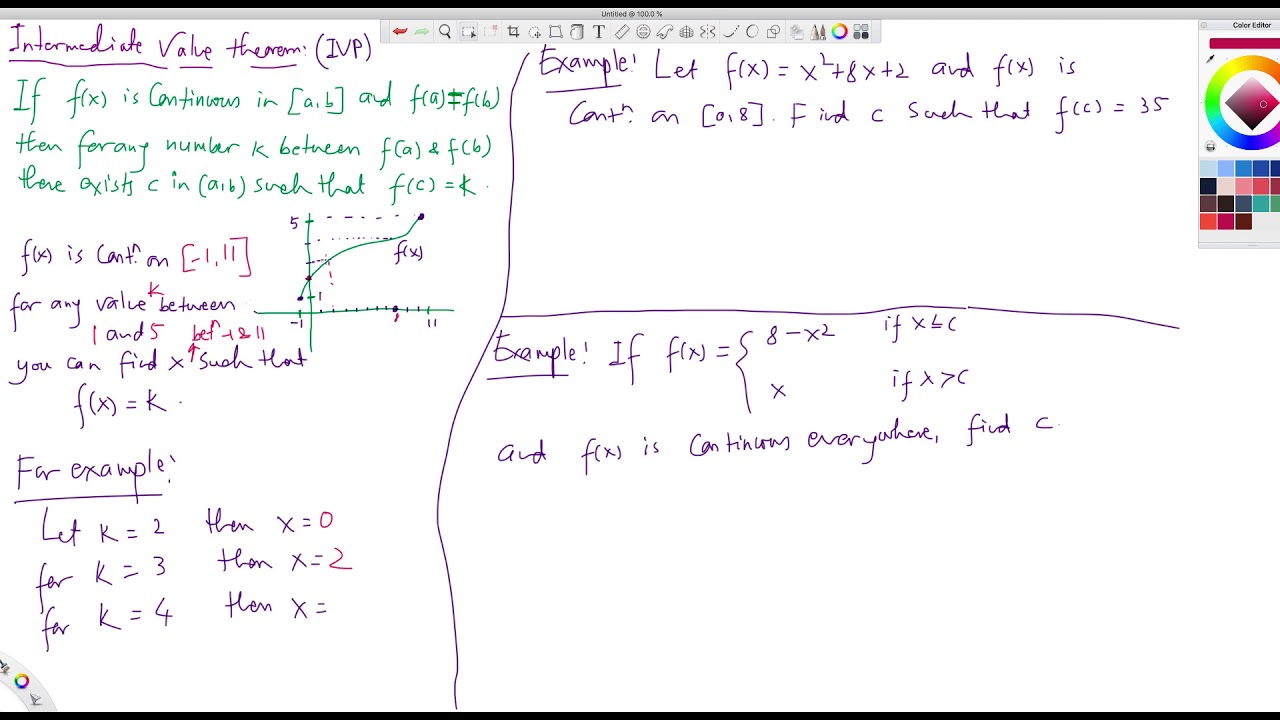 Untitled @ 100.0 %
Color Editor
Intermediate Value theorem: (IVP)
If f(x) is Continuous in [a,b] and f(a)≠f(b)
then for any number k between f(a) & f(b)
there exists c in (a,b) such that f(c) = k.
5
1
-1
11
f(x)
f(x) is Contⁿ. on [-1,11]
for any value k between
1 and 5 betⁿ -1 & 11
you can find x such that
f(x) = k.
For example:
Let k = 2 then x = 0
for k = 3 then x = 2
for k = 4 then x =
Example: Let f(x) = x²+8x+2 and f(x) is
Contⁿ. on [0,8]. Find c such that f(c) = 35
Example: If f(x) = { 8-x² if x ≤ c
x if x > c
and f(x) is continuous everywhere, find c.